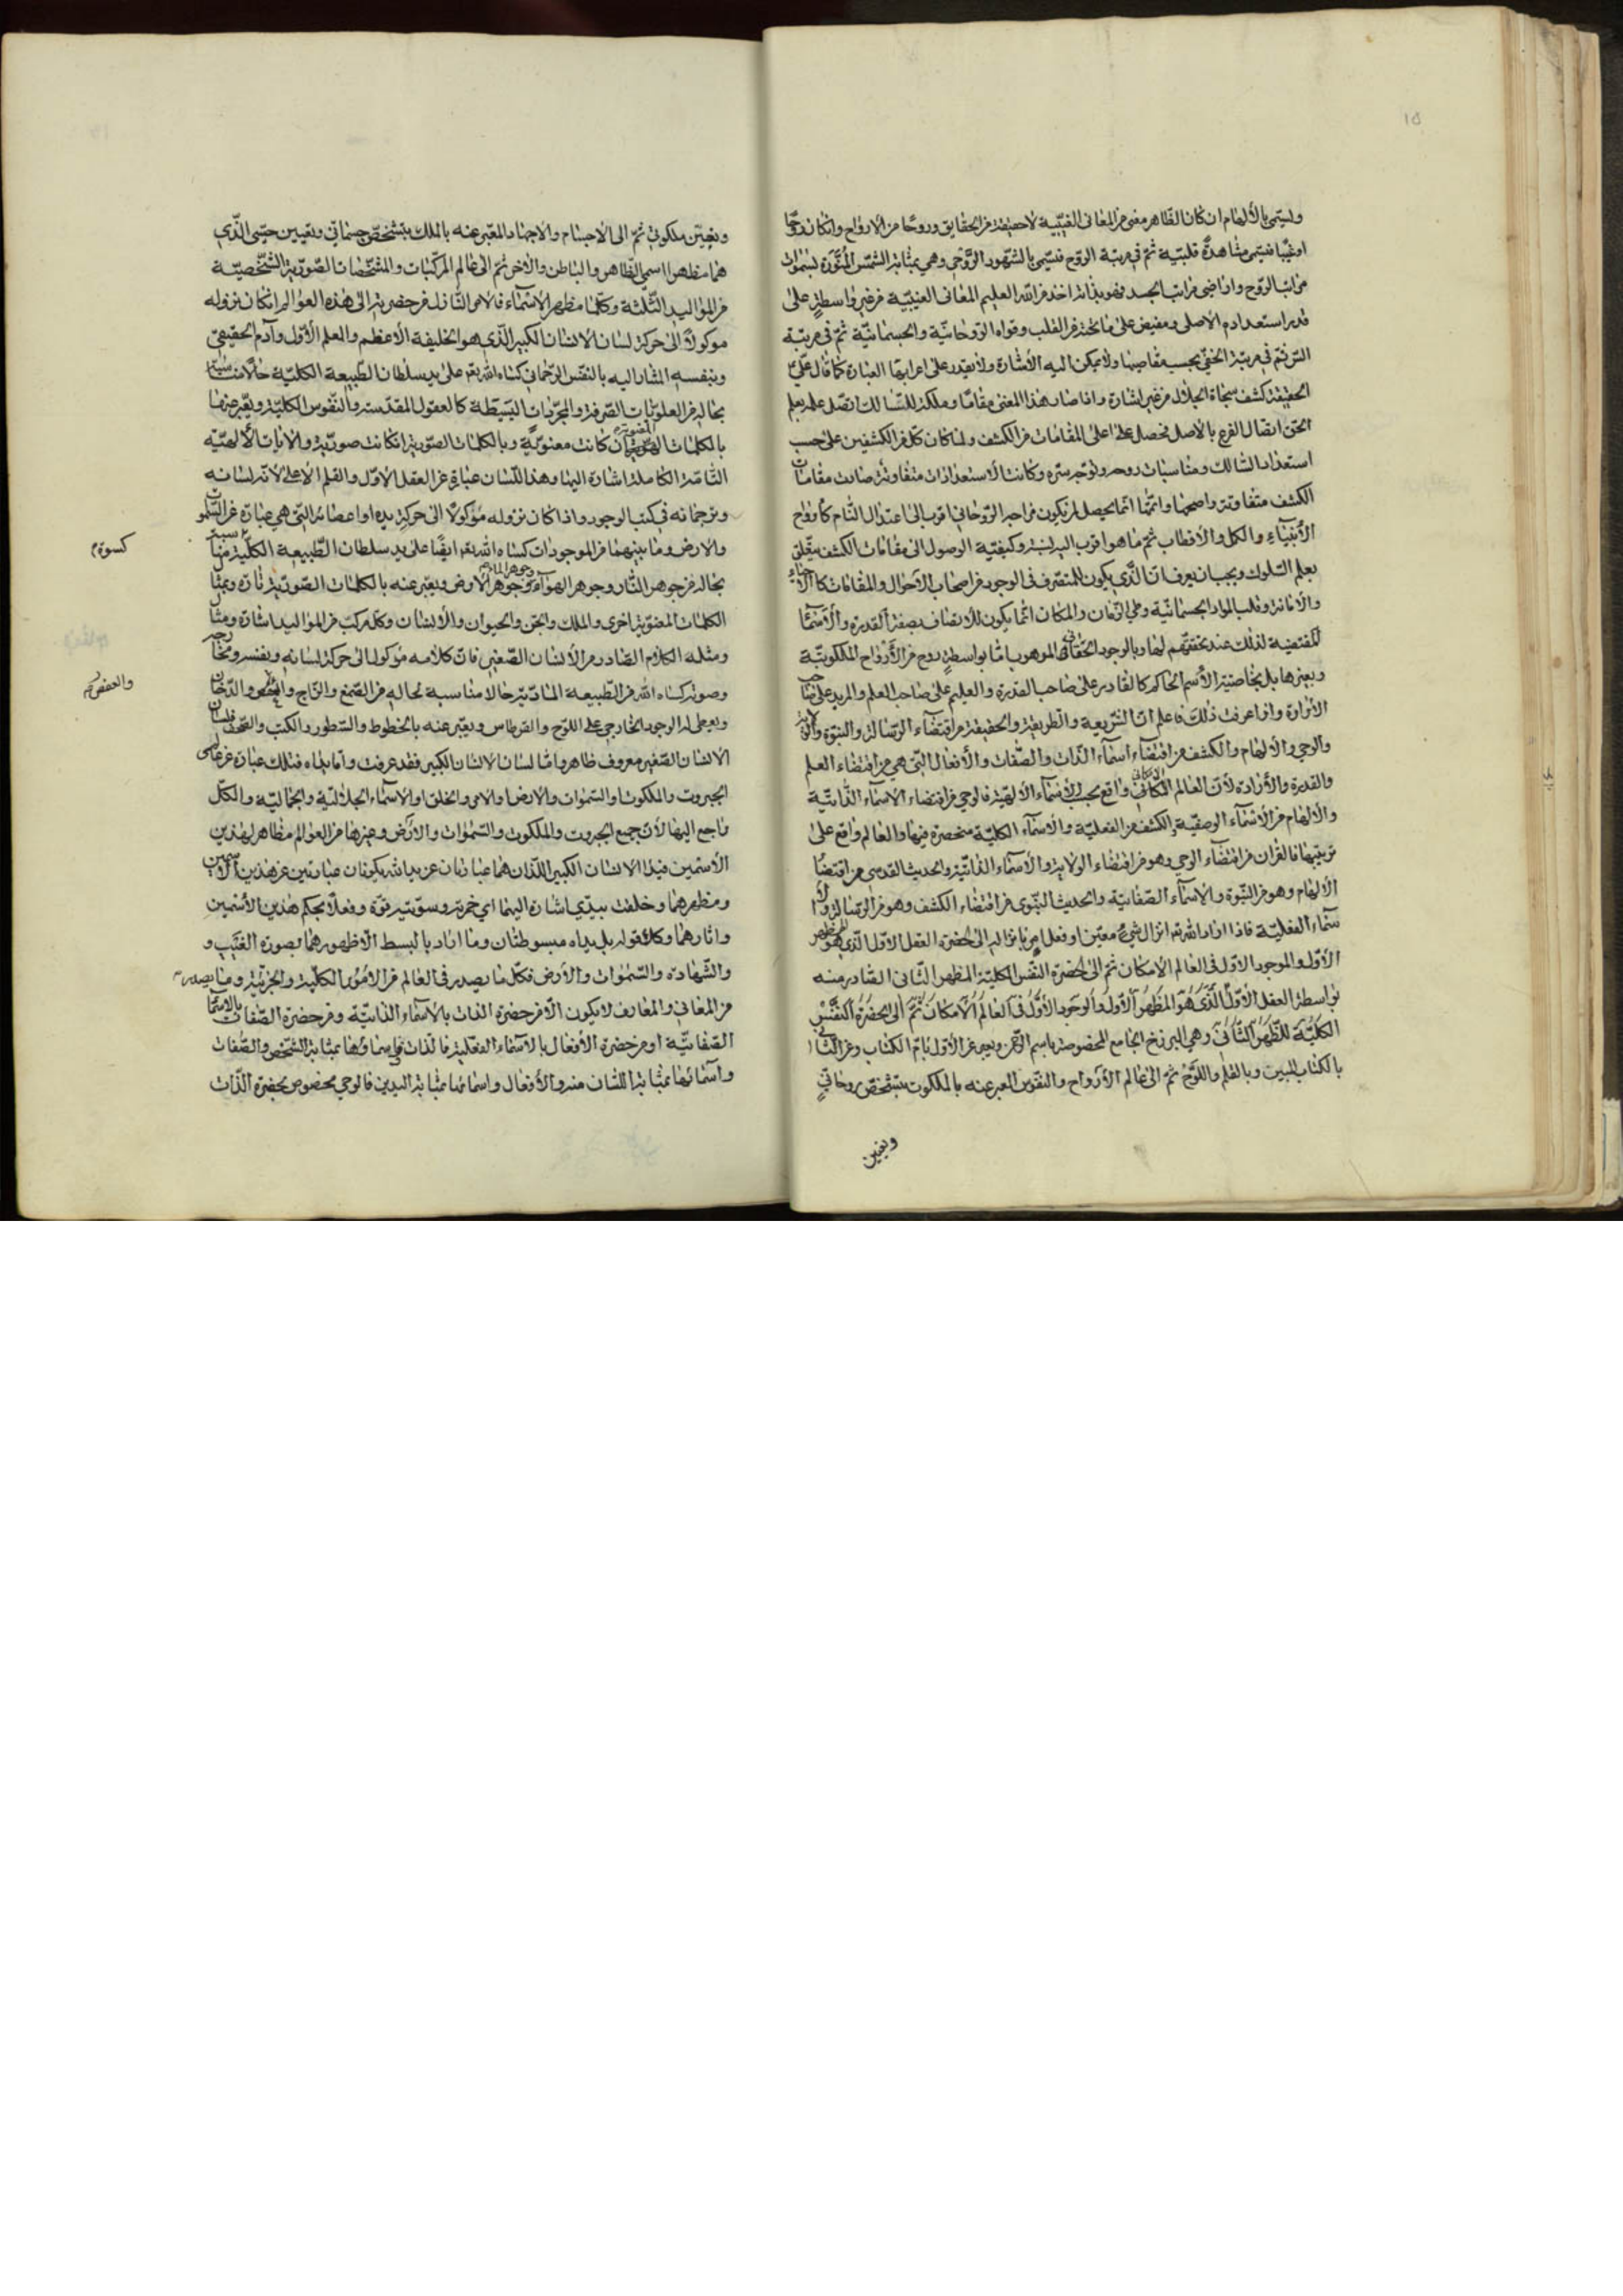 15
وليسمى بالألهام ان كان الظاهر معنى من المعانى الغيبية لاحقيقة من الحقايق وروحا من الارواح وان كان روحا
او غيبا فيسمى مشاهدة قلبية ثم فى مرتبة الروح فيسمى بالشهود الروحى وهى بمثابة الشمس المنورة لسموات
مراتب الروح واراضى مراتب الجسد فهو بذاته اخذ من الله العليم المعانى الغيبية من غير واسطة على
قدر استعداده الاصلى ومفيض على ما تحته من القلب وقواه الروحانية والجسمانية ثم فى مرتبة
السر ثم فى مرتبة الخفى بحسب مقاميهما ولا يمكن اليه الأشارة ولا يقدر على اعرابها العبارة كما قال على
الحقيقة كشف سبحات الجلال من غير اشارة واذا صار هذا المعنى مقاما وملكة للسالك اتصل علمه بعلم
الحق اتصال الفرع بالأصل فحصل على اعلى المقامات من الكشف ولما كان كل من الكشفين على حسب
استعداد السالك ومناسبات روحه وتوجه سره وكانت الاستعدادات متفاوتة صارت مقامات
الكشف متفاوتة واصحها واتمها انما يحصل لمن يكون مزاجه الروحانى اقرب الى اعتدال التام كأرواح
الأنبياء والكل والأقطاب ثم ما هو اقرب اليه نسبة وكيفية الوصول الى مقامات الكشف متعلق
بعلم السلوك ويجب ان يعرف ان الذى يكون للمتصرف فى الوجود من اصحاب الأحوال والمقامات كالأحياء
والأماتة وقلب المواد الجسمانية وطى الزمان والمكان انما يكون للأتصاف بصفة القدرة والأسماء
المقتضية لذلك عند تحققهم لها وبالوجود الحقانى الموهوب اما بواسطة روح من الأرواح الملكوتية
وبغيرها بل بخاصية الأسم الحاكم كالقادر على صاحب القدرة والعليم على صاحب العلم والمريد على صاحب
الأرادة واذا عرفت ذلك فاعلم ان الشريعة والطريقة والحقيقة من اقتضاء الرسالة والنبوة والولاية
والوحى والالهام والكشف من اقتضاء اسماء الذات والصفات والأفعال التى هى من اقتضاء العلم
والقدرة والأرادة لأن العالم الامكانى واقع بحسب الأسماء الألهية فالوحى من اقتضاء الاسماء الذاتية
والالهام من الأسماء الوصفية والكشف من الفعلية والاسماء الكلية منحصرة فيها والعالم واقع على
ترتيبها فالقران من اقتضاء الوحى وهو من اقتضاء الولاية والأسماء الذاتية والحديث القدسى من اقتضاء
الألهام وهو من النبوة والاسماء الصفاتية والحديث النبوى من اقتضاء الكشف وهو من الرسالة والأ
سماء الفعلية فاذا اراد الله تم انزال شئ معين او فعل امر بانزاله الى حضرة العقل الاول الذى هو المظهر
الأول والموجود الاول فى العالم الأمكان ثم الى الحضرة النفس الكلية المظهر الثانى الصادر منه
بواسطة العقل الأول الذى هو المظهر الأول والوجود الأول فى العالم الأمكان ثم الى الحضرة النفس
الكلية المظهر الثانى وهى البرزخ الجامع المخصوصة باسم الرحمن ويعبر عن الأول بام الكتاب وعن الثانى
بالكتاب المبين وبالقلم واللوح ثم الى عالم الأرواح والنفوس المعبر عنه بالملكوت بتشخص روحانى
وتعيين
وتعيين ملكوتى ثم الى الاجسام والاجساد المعبر عنه بالملك بتشخص جسمانى وتعيين حسى الذى
هما مظهرا اسمى الظاهر والباطن والأخر ثم الى عالم المركبات والمشخصات الصورية الشخصية
من المواليد الثلثة وكلها مظهر الأسماء فالامر النازل من حضرته الى هذه العوالم ان كان نزوله
موكولا الى حركة لسان الانسان الكبير الذى هو الخليفة الأعظم والعلم الأول وآدم الحقيقى
وبنفسه المشار اليه بالنفس الرحمانى كساه الله تعم على يد سلطان الطبيعة الكلية حلا مناسبة
بحاله من العلويات الصرفة والمجردات البسيطة كالعقول المقدسة والنفوس الكلية ويعبر عنها
بالكلمات المعنوية ان كانت معنوية وبالكلمات الصورية ان كانت صورية والايات الالهية
التامة الكاملة اشارة اليها وهذا اللسان عبارة عن العقل الاول والقلم الاعلى لأنه لسانه
وترجمانه فى كتب الوجود واذا كان نزوله موكولا الى حركة يده او اعضائه التى هى عبارة عن السموات
والارض وما بينهما من الموجودات كساه الله تعم ايضا على يد سلطان الطبيعة الكلية مناسبة
كسوة م
بحاله من جوهر النار وجوهر الهواء وجوهر الماء وجوهر الأرض ويعبر عنه بالكلمات الصورية تارة وبمثال
الكلمات المعنوية اخرى والملك والجن والحيوان والأنسان وكل مركب من المواليد اشارة ومثال
ومثله الكلام الصادر من الأنسان الصغير فان كلامه موكول الى حركة لسانه وبنفسه ومخارجه
وصوته كساه الله من الطبيعة المادية حالا مناسبة لحاله من الصمغ والزاج والدخان
والعفص م
ويعطى له الوجود الخارجى على اللوح والقرطاس ويعبر عنه بالخطوط والسطور والكتب والصحف فلسان
الانسان الصغير معروف ظاهر واما لسان الانسان الكبير فقد عرفت واما يداه فتلك عبارة عن عالمى
الجبروت والملكوت او السموات والارض او الامر والخلق او الاسماء الجلالية والجمالية والكل
راجع اليها لأن جميع الجبروت والملكوت والسموات والأرض وغيرها من العوالم مظاهر لهذين
الأسمين فيدا الانسان الكبير اللذان هما عبارتان عن يد الله يكونان عبارتين عن هذين الاسمين
ومظهرهما وخلقت بيدى اشارة اليهما اى خمرته وسويته قوة وفعلا بحكم هذين الأسمين
واثارهما وكك قوله بل يداه مبسوطتان وما اراد بالبسط الا ظهورهما بصورة الغيب و
والشهاده والسموات والأرض فكل ما يصدر فى العالم من الامور الكلية والجزئية وما يصدر
من المعانى والمعارف لا يكون الا من حضرة الذات بالأسماء الذاتية ومن حضرة الصفات بالأسماء
الصفاتية او من حضرة الأفعال بالأسماء الفعلية فالذات واسماؤها بمثابة الشخص والصفات
واسمائها بمثابة اللسان منه والأفعال واسمائها بمثابة اليدين فالوحى مخصوص بحضرة الذات